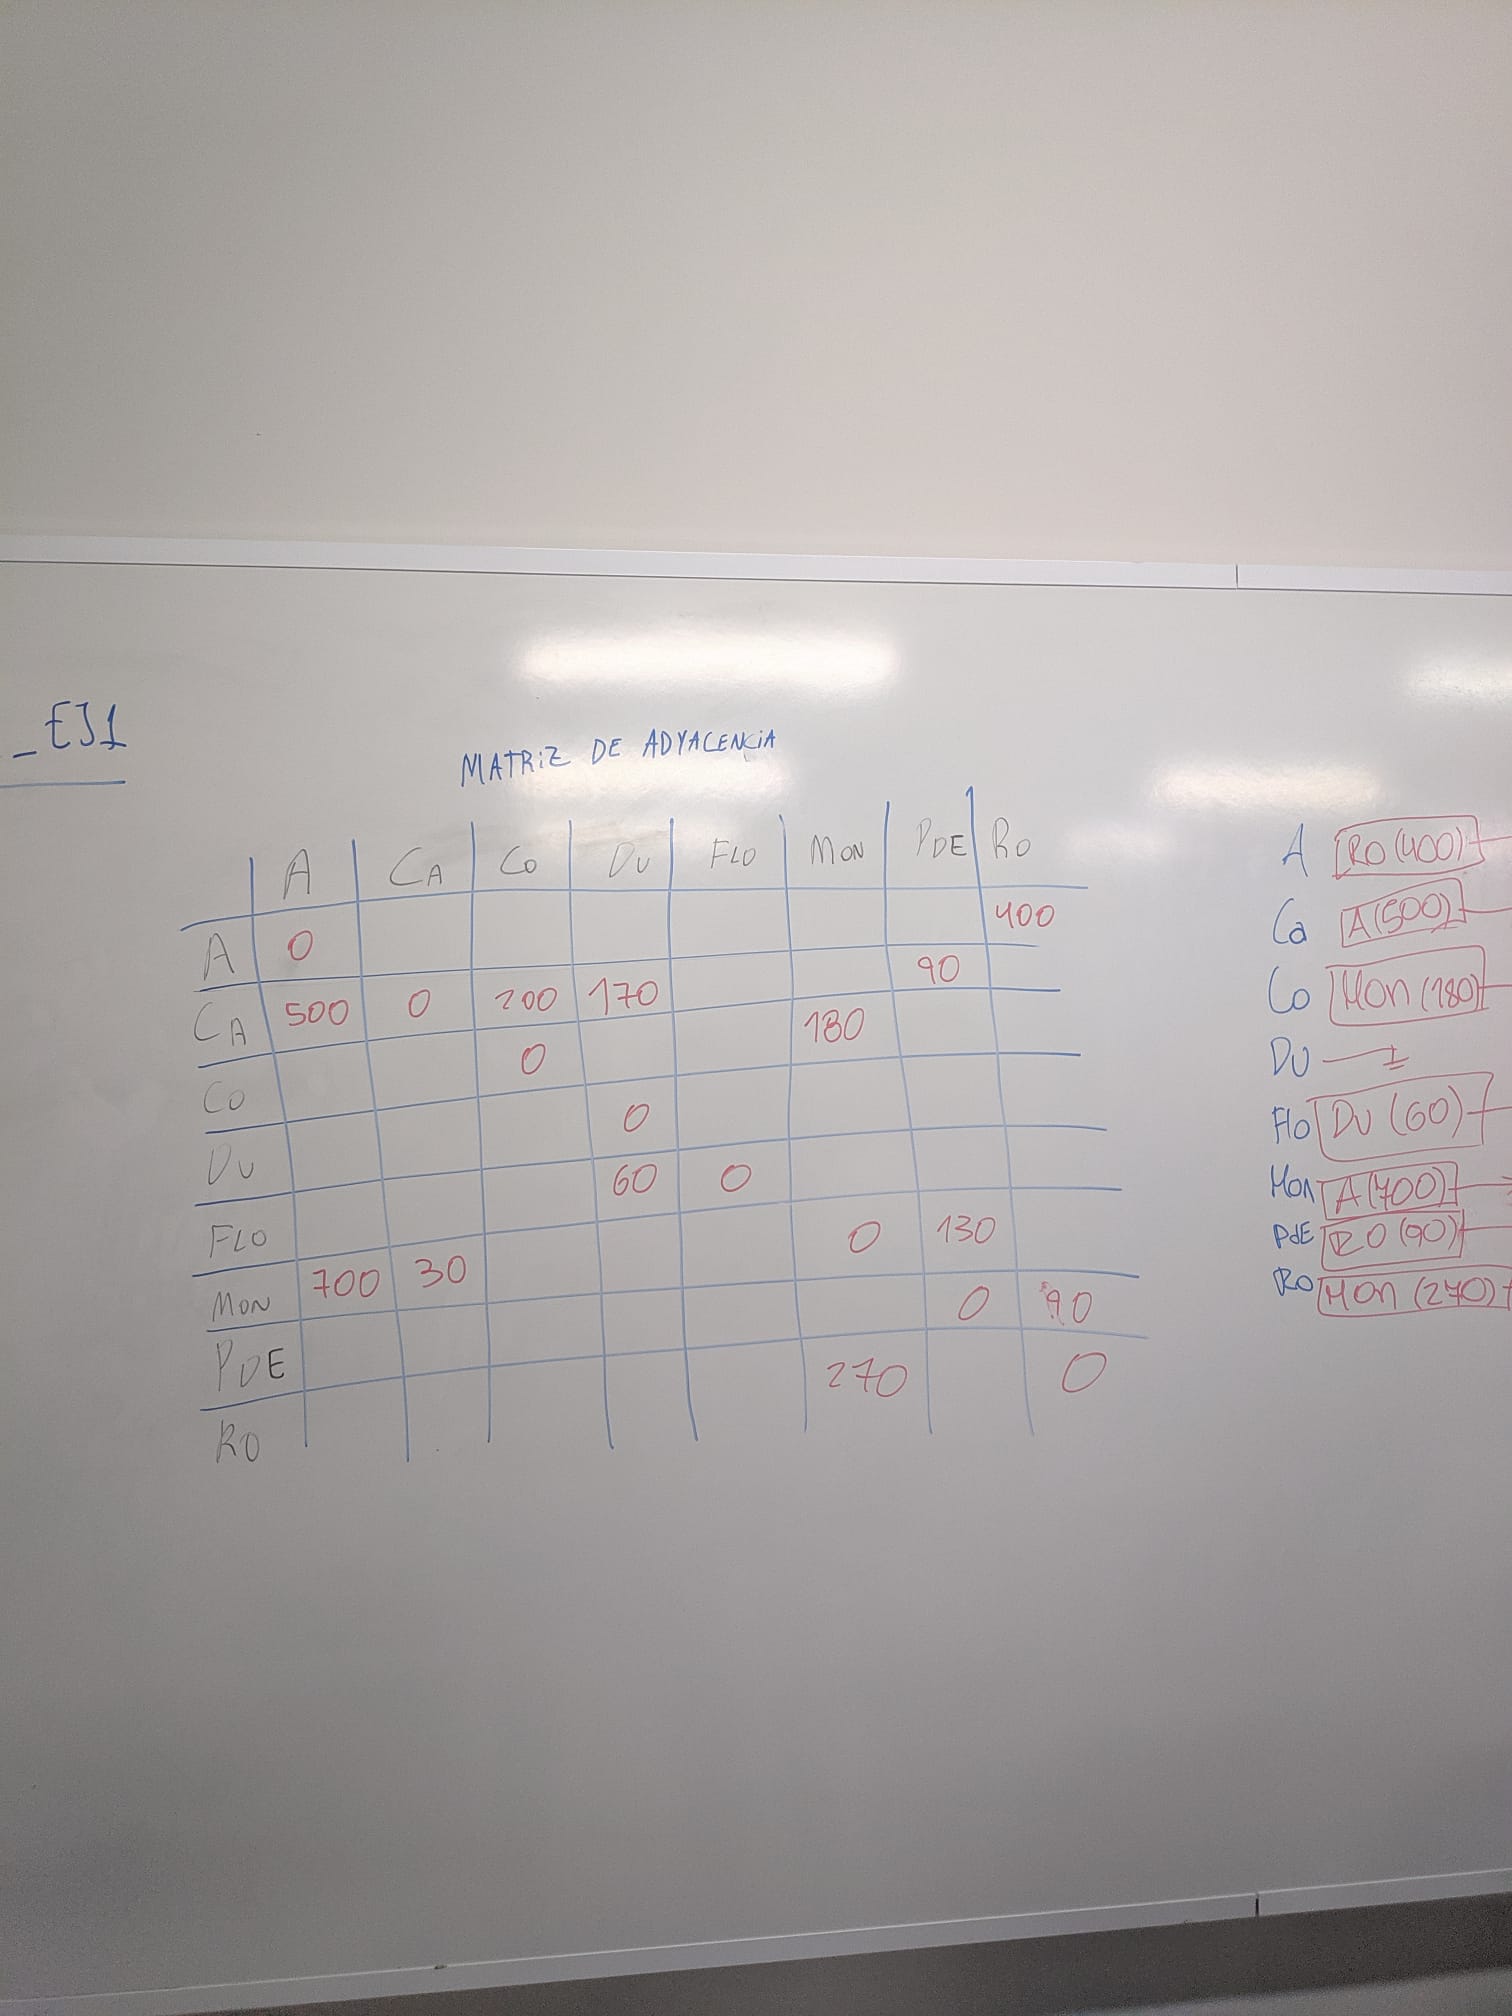 _EJ1
MATRIZ DE ADYACENCIA
A CA CO DU FLO MON PDE RO
A 0 400
CA 500 0 200 170 90
CO 0 180
DU 0
FLO 60 0
MON 700 30 0 130
PDE 0 90
RO 270 0
A RO (400)
Ca A (500)
Co Mon (180)
DU
Flo DU (60)
Mon A (700)
PdE RO (90)
RO Mon (270)